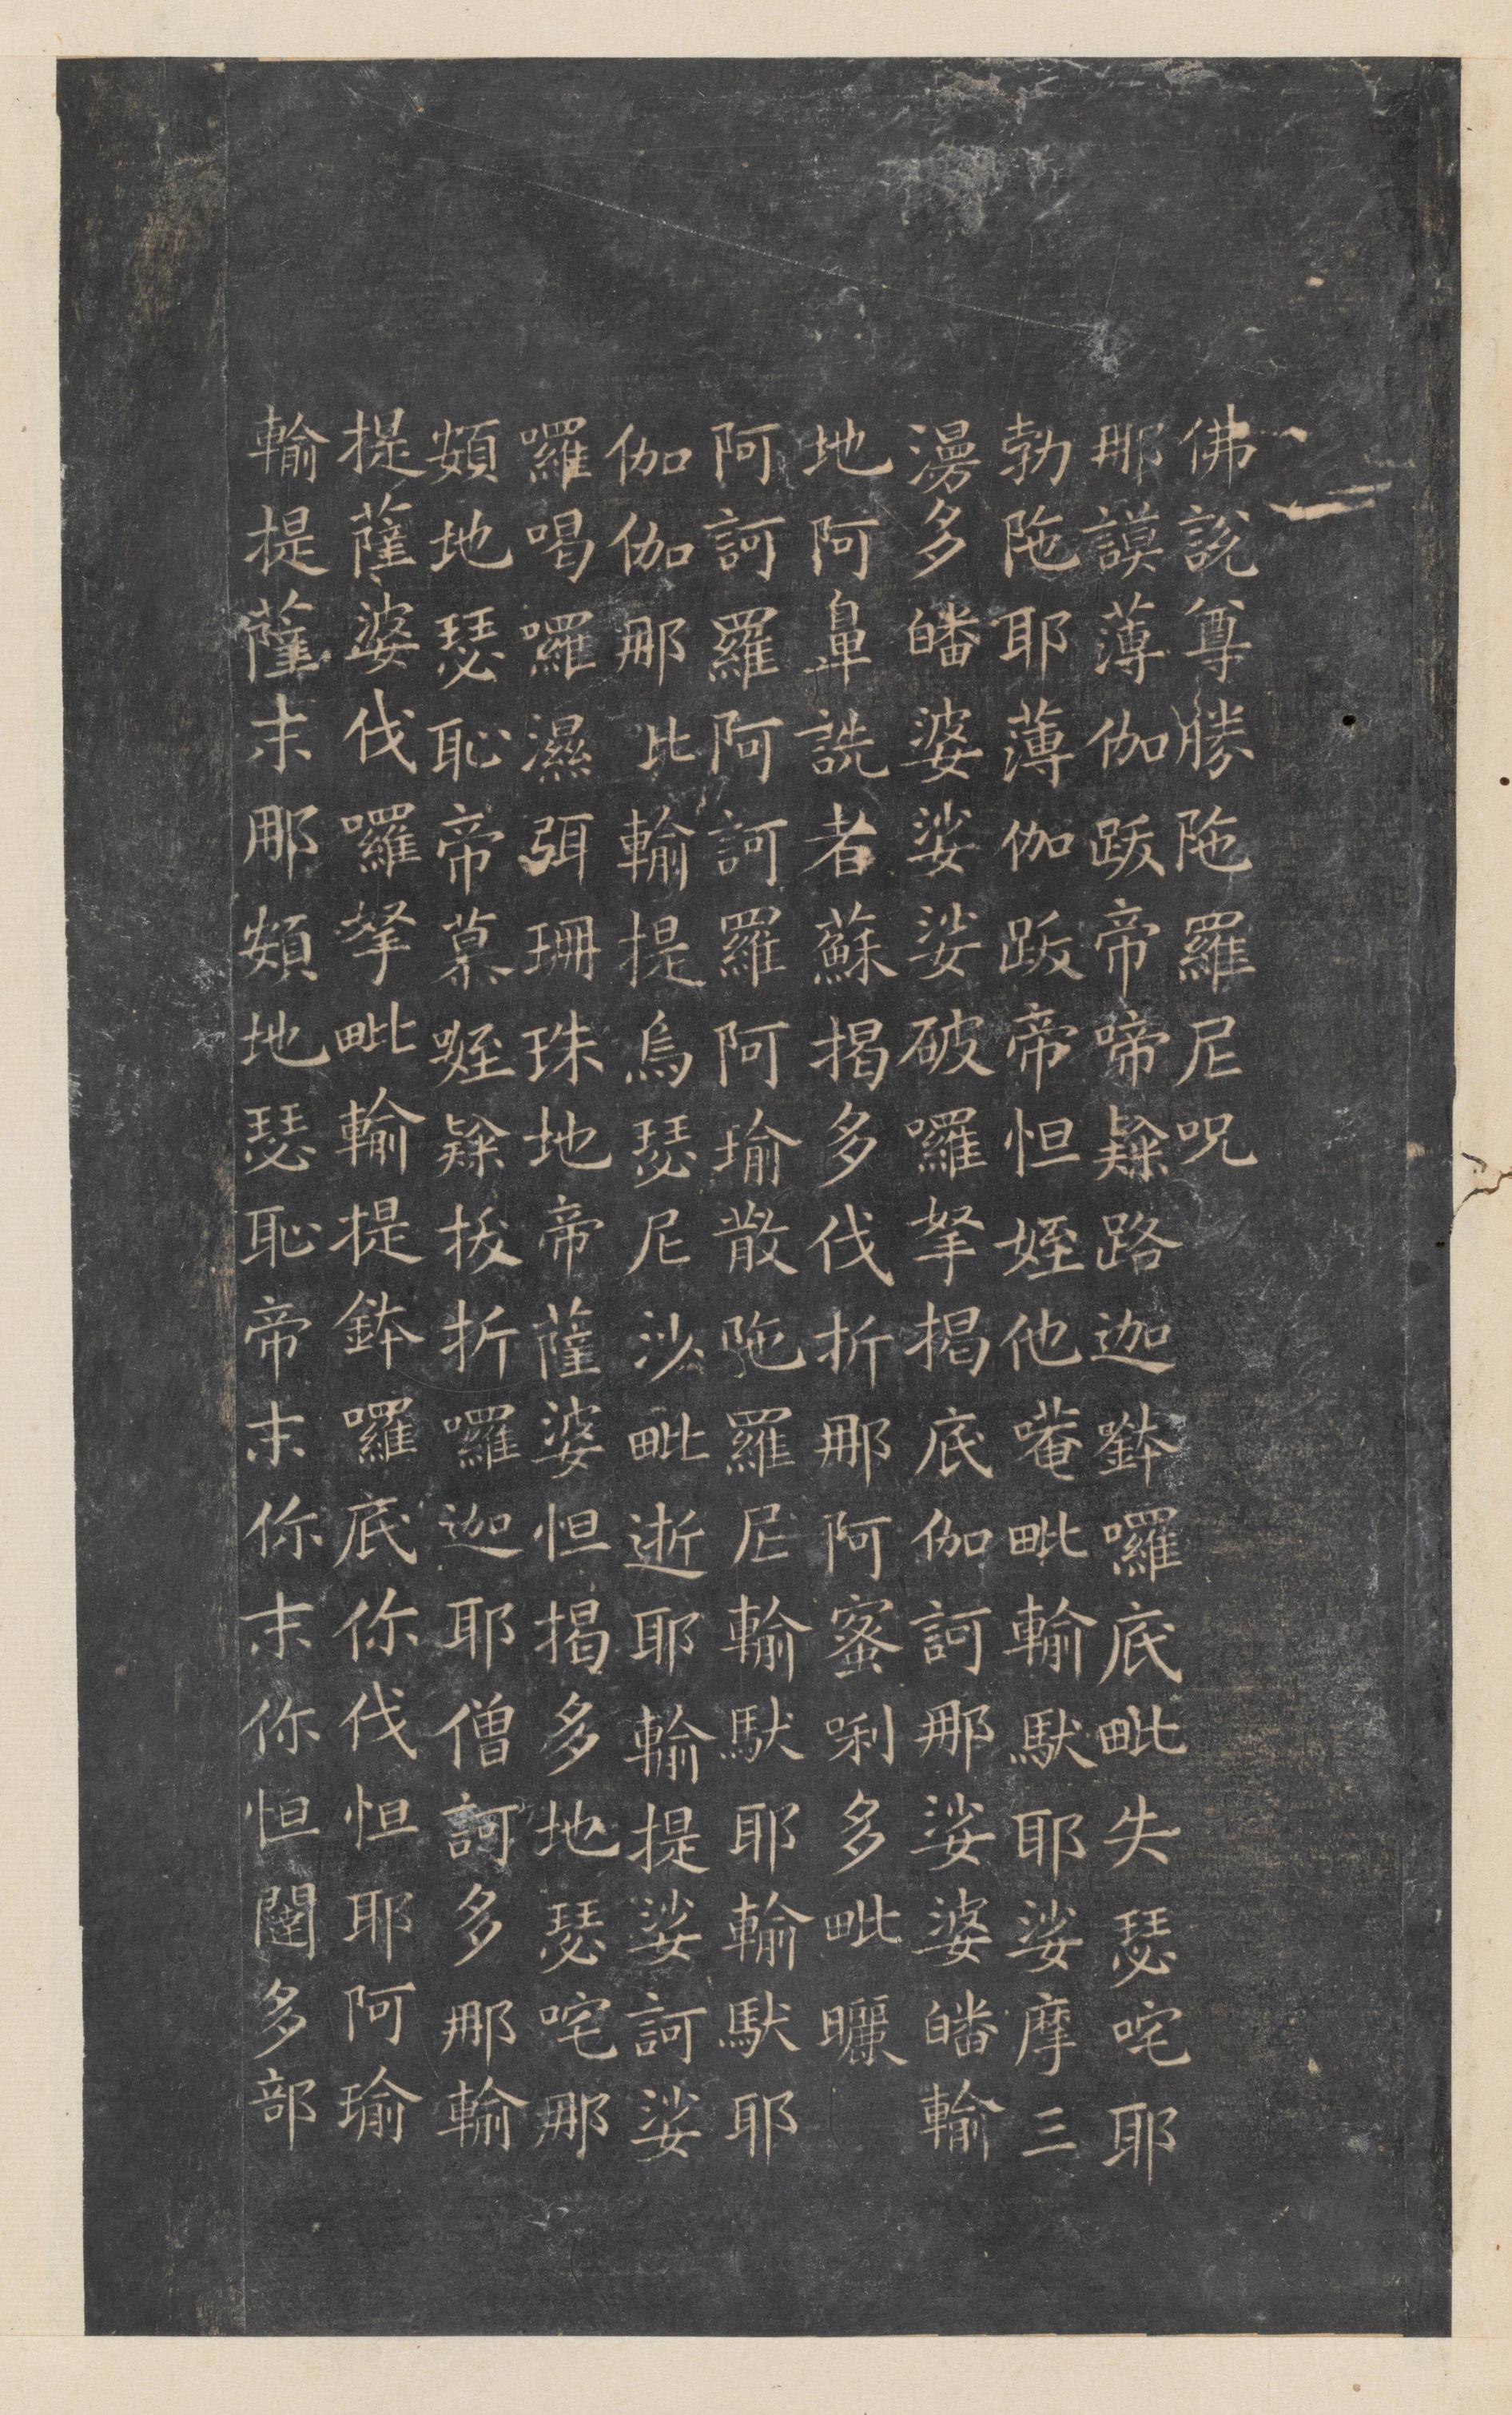 佛說尊勝陁羅尼呪
那謨薄伽跋帝啼𨽻路迦𨱡囉底毗失瑟咤耶
勃陁耶薄伽跋帝怛姪他唵毗輸馱耶娑摩三
漫多皤婆娑娑破囉拏揭底伽訶那娑婆皤輸
地阿鼻詵者蘇揭多伐折那阿蜜唎多毗曬
阿訶羅阿訶羅阿瑜散陁羅尼輸馱耶輸馱耶
伽伽那比輸提烏瑟尼沙毗逝耶輸提娑訶娑
囉喝囉濕弭珊珠地帝薩婆怛揭多地瑟咤那
頞地瑟恥帝慕姪𨽻拔折囉迦耶僧訶多那輸
提薩婆伐囉拏毗輸提鉢囉底你伐怛耶阿瑜
輸提薩末那頞地瑟恥帝末你末你怛闥多部